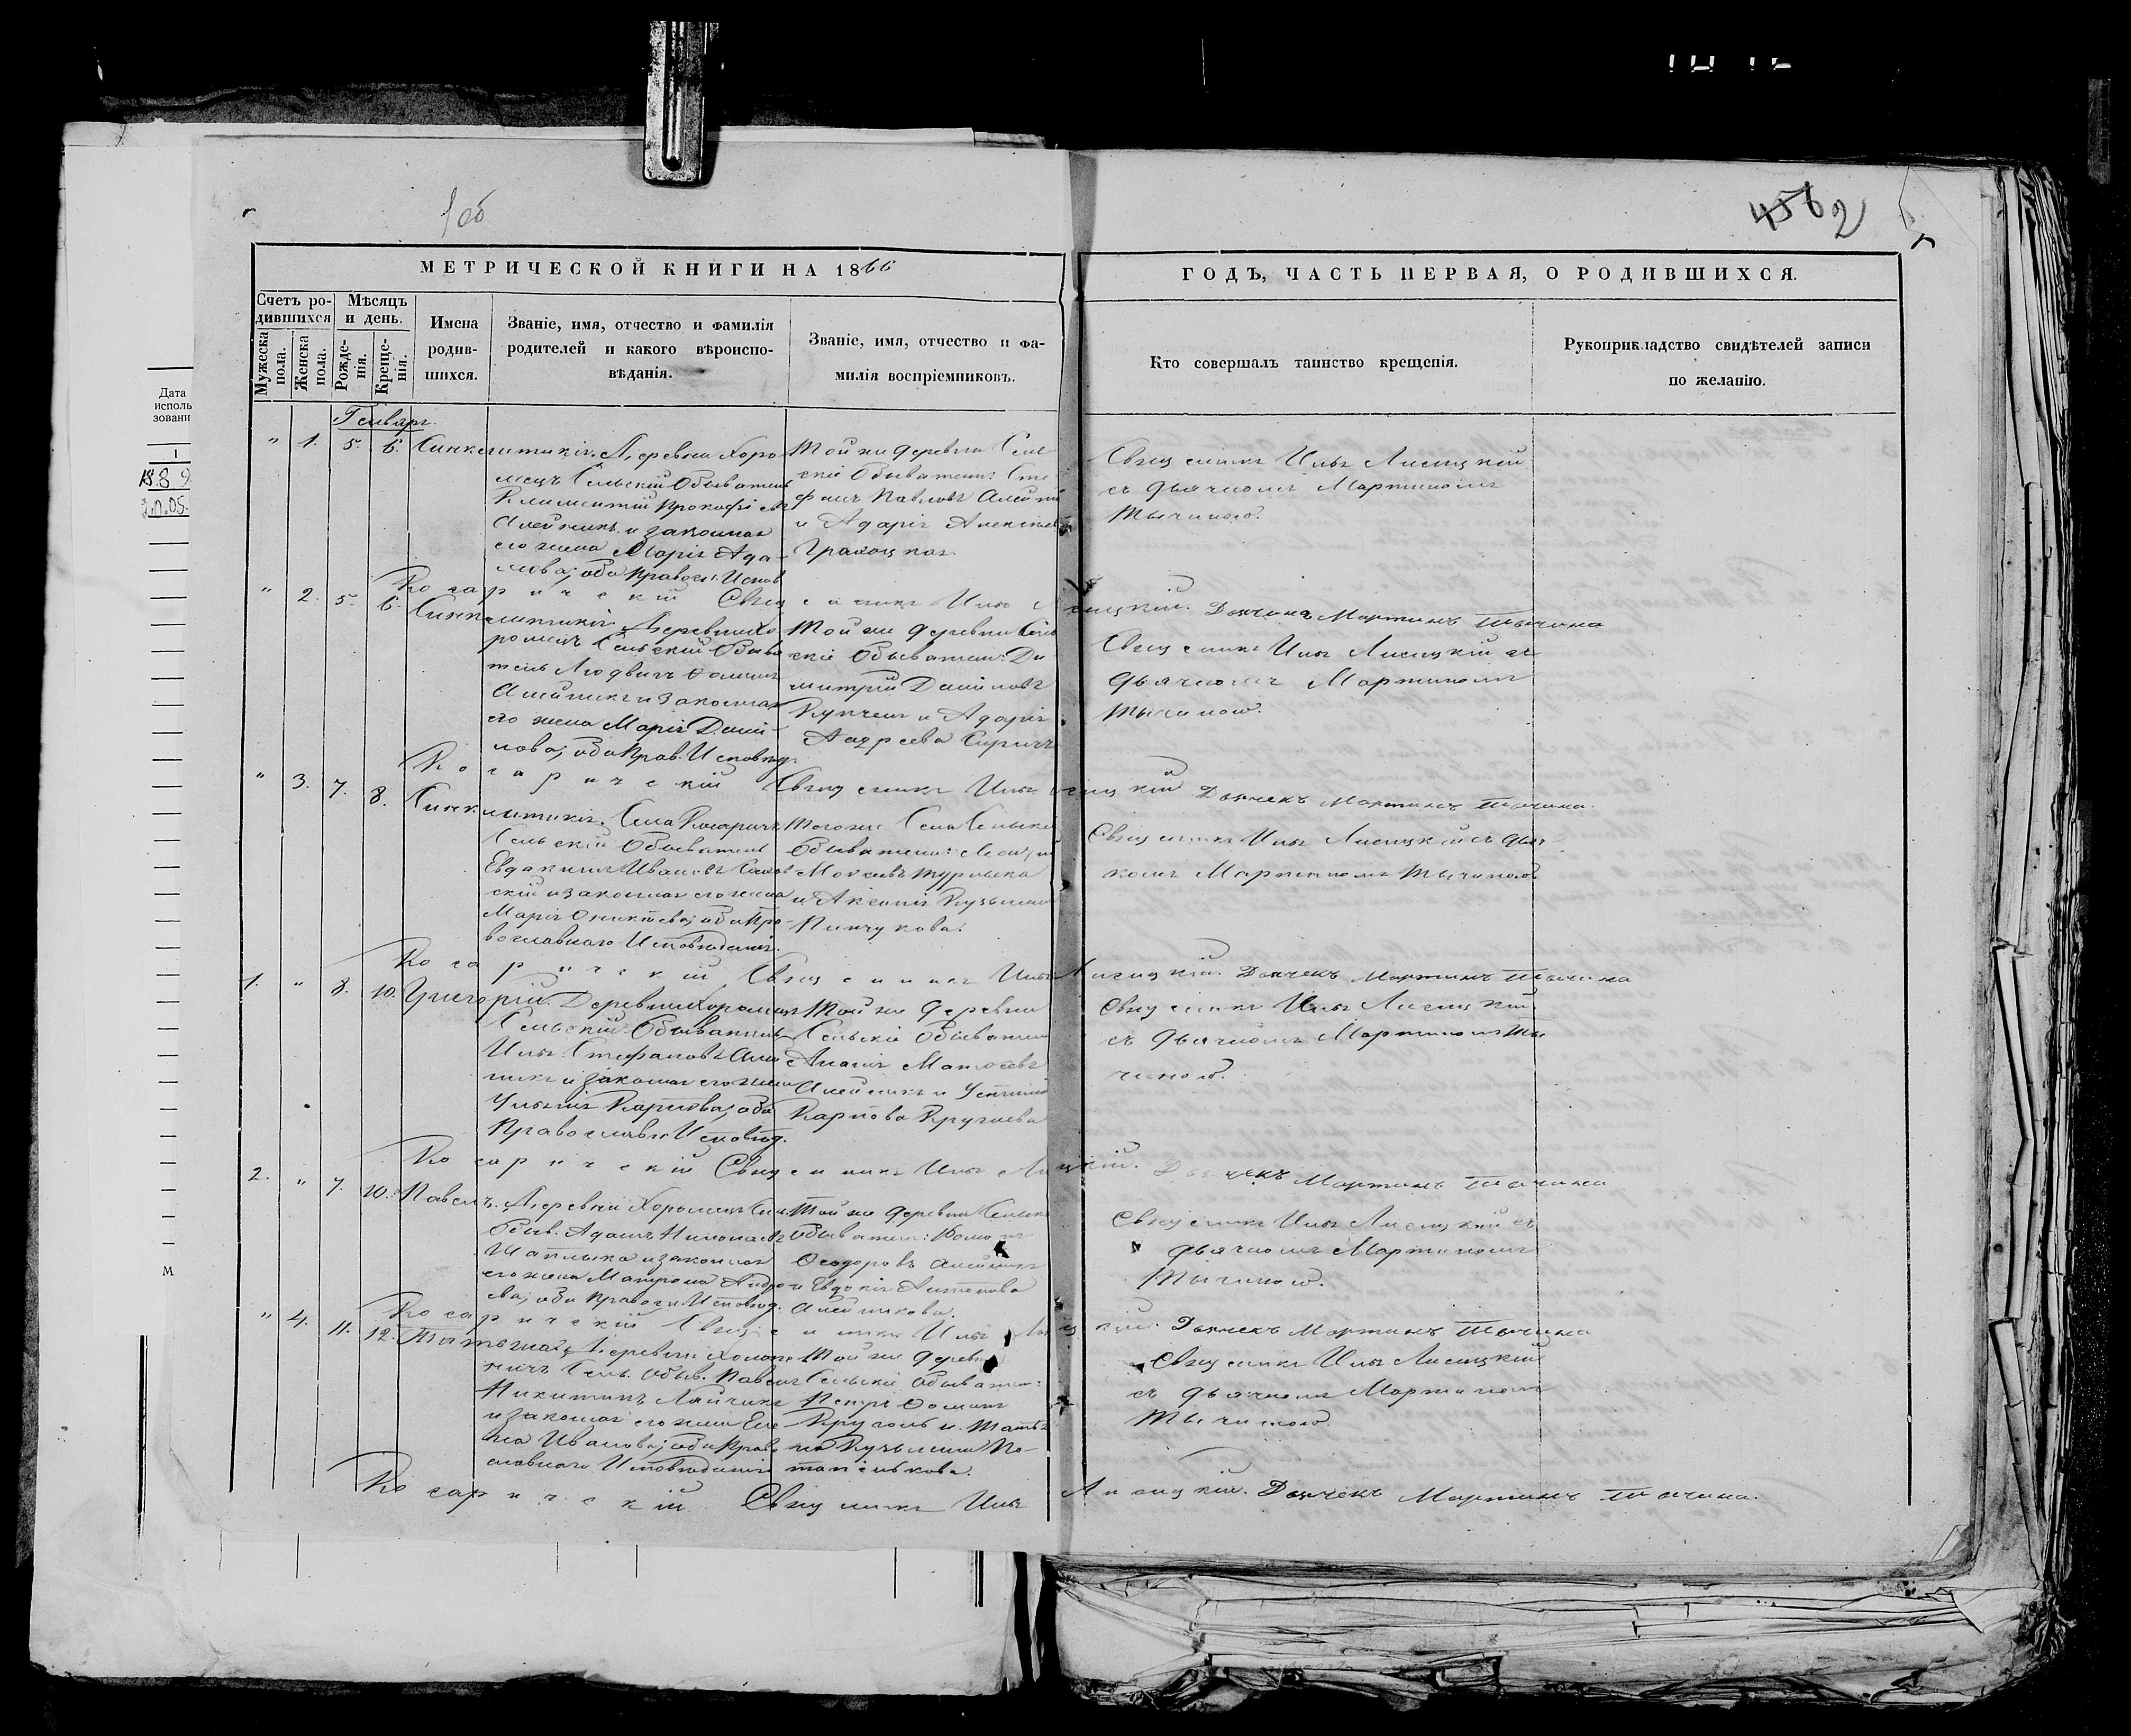 106
4562
МЕТРИЧЕСКОЙ КНИГИ НА 1866
ГОДЪ, ЧАСТЬ ПЕРВАЯ, О РОДИВШИХСЯ.
Счетъ ро-
дившихся
Мужеска пола.
Женска пола.
Мѣсяцъ
и день.
Рожде-
нія.
Креще-
нія.
Имена
родив-
шихся.
Званіе, имя, отчество и фамилія
родителей и какого вѣроиспо-
вѣданія.
Званіе, имя, отчество и фа-
милія воспріемниковъ.
Кто совершалъ таинство крещенія.
Рукоприкладство свидѣтелей записи
по желанію.
Дата
исполь
зовани
1
М
Генварь.
" 1. 5. 6. Синклитикія.
Деревни Хоро-
мецъ Сельскій Обыватель
Климентій Прокофіевъ
Алейникъ и законная
его жена Марія Ада-
мова; оба Правосл. Испов
Той же деревни Сель
скіе Обыватели: Сте
фанъ Павловъ Алейни
и Адарія
Священникъ Илья Лисицкій
съ дьячкомъ Мартиномъ
Тычиною.
Косарическій Священникъ Илья Лисицкій. Дьячекъ Мартинъ Тычина
" 2. 5. 6. Синклитикія.
Деревни Хо
ромецъ Сельскій Обыва
тель Людвигъ Ѳоминъ
Алейникъ и законная
его жена Марія Дани-
лова; оба Прав. Исповѣд.
Той же деревни Сель
скіе Обыватели: Ди
митрій Даниловъ
и Адарія
Андреева
Священникъ Илья Лисицкій съ
дьячкомъ Мартиномъ
Тычиною.
Косарическій Священникъ Илья Лисицкій Дьячекъ Мартинъ Тычина.
" 3. 7. 8. Синклитикія.
Села Косаричъ
Сельскій Обыватель
Евдакимъ Ивановъ
скій и законная его жена
Марія обѣ Пра-
вославнаго Исповѣданія.
Того же Села Сельскіе
Обыватели:
и Аксинія Кузьмина
Пинчукова.
Священникъ Илья Лисицкій съ дьяч
комъ Мартиномъ Тычиною
Косарическій Священникъ Илья Лисицкій. Дьячекъ Мартинъ Тычина
1. " 8. 10. Григорій.
Деревни Хоромецъ
Сельскій Обыватель
Илья Стефановъ Алей
никъ и законная его жена
Ульянія Карпова; оба
Православн. Исповѣд.
Той же деревни
Сельскіе Обыватели
Матвѣевъ
Алейникъ и Устинія
Карпова
Священникъ Илья Лисицкій
съ дьячкомъ Мартиномъ Ты
чиною.
Косарическій Священникъ Илья Лисицкій. Дьячекъ Мартинъ Тычина
2. " 7. 10. Павелъ.
Деревни Хоромецъ Сель.
Обыв. Адамъ
и законная
его жена Матрона Андре
ева; оба Правосл. Исповѣд.
Той же деревни Сельскіе
Обыватели: Романъ
Ѳеодоровъ Алейникъ
и Евдокія Антонова
Алейникова.
Священникъ Илья Лисицкій съ
дьячкомъ Мартиномъ
Тычиною.
Косарическій Священникъ Илья Лисицкій. Дьячекъ Мартинъ Тычина
" 4. 11. 12. Татьяна.
Деревни
Сель. Обыв. Павелъ
Никитинъ
и законная его жена Еле
на Иванова; оба Право
славнаго Исповѣданія
Той же деревни
Сельскіе Обыватели:
Петръ Ѳоминъ
и Татья
на Кузьмина По-
Священникъ Илья Лисицкій
съ дьячкомъ Мартиномъ
Тычиною.
Косарическій Священникъ Илья Лисицкій. Дьячекъ Мартинъ Тычина.